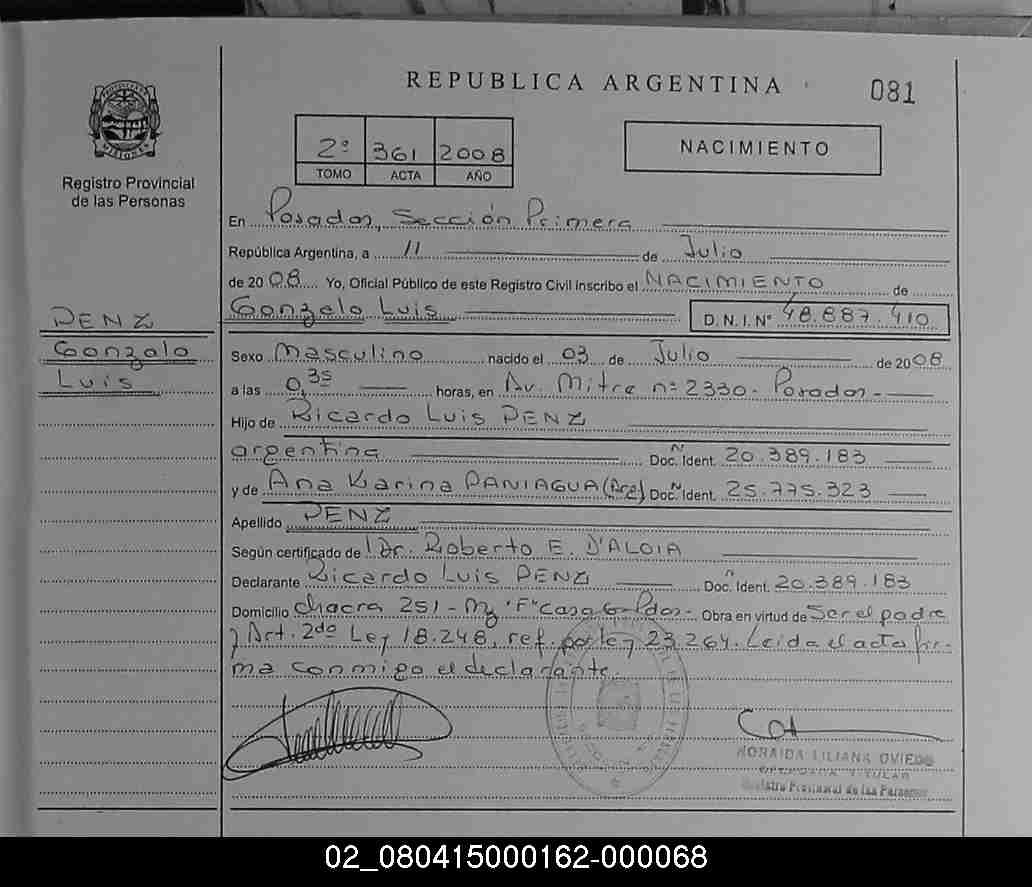 REPUBLICA ARGENTINA
081
PROVINCIA DE MISIONES
Registro Provincial
de las Personas
2º 361 2008
TOMO ACTA AÑO
NACIMIENTO
En Posadas, Sección Primera
República Argentina, a 11 de Julio
de 2008 Yo, Oficial Público de este Registro Civil inscribo el NACIMIENTO de
Gonzalo Luis D.N.I. Nº 48.887.410
PENZ
Gonzalo
Luis
Sexo Masculino nacido el 03 de Julio de 2008
a las 0,35 horas, en Av. Mitre nº 2330 - Posadas -
Hijo de Ricardo Luis PENZ
argentina Doc. Ident. 20.389.183
y de Ana Karina PANIAGUA (Arg) Doc. Ident. 25.775.323
Apellido PENZ
Según certificado de Dr. Roberto E. D'ALOIA
Declarante Ricardo Luis PENZ Doc. Ident. 20.389.183
Domicilio chacra 251 - Mz "F" Casa 6 - Pdas - Obra en virtud de Ser el padre
y Art. 2do Ley 18.248, ref. por ley 23.264. Leida el acta fir-
ma conmigo el declarante.
NORAIDA LILIANA OVIEDO
OPERADORA TITULAR
Registro Provincial de las Personas
02_080415000162-000068